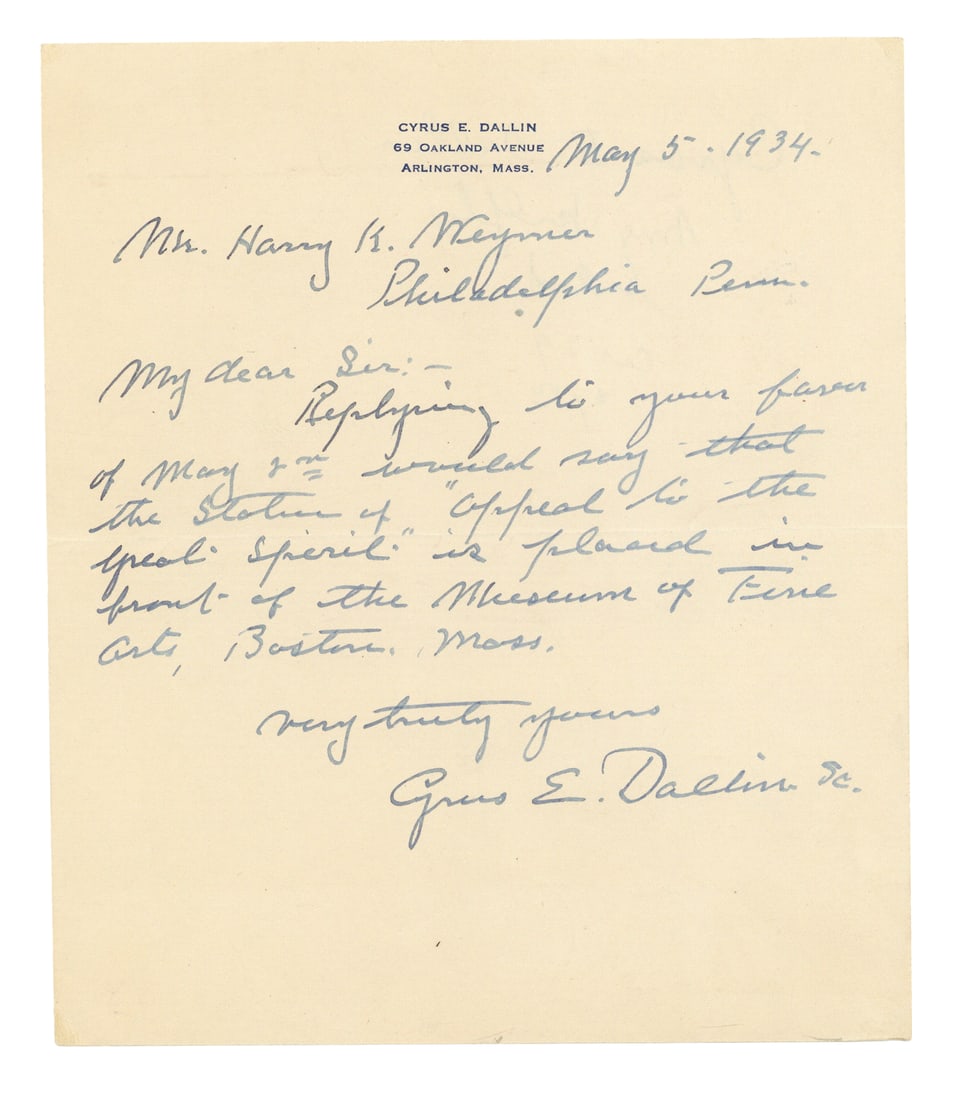 CYRUS E. DALLIN
69 OAKLAND AVENUE
ARLINGTON, MASS.
May 5 - 1934.
Mr. Harry K. Weymer
Philadelphia Penn.
My dear Sir:-
Replying to your favor
of May 2nd would say that
the Statue of "Appeal to the
great Spirit" is placed in
front of the Museum of Fine
Arts, Boston. Mass.
very truly yours
Cyrus E. Dallin Sc.